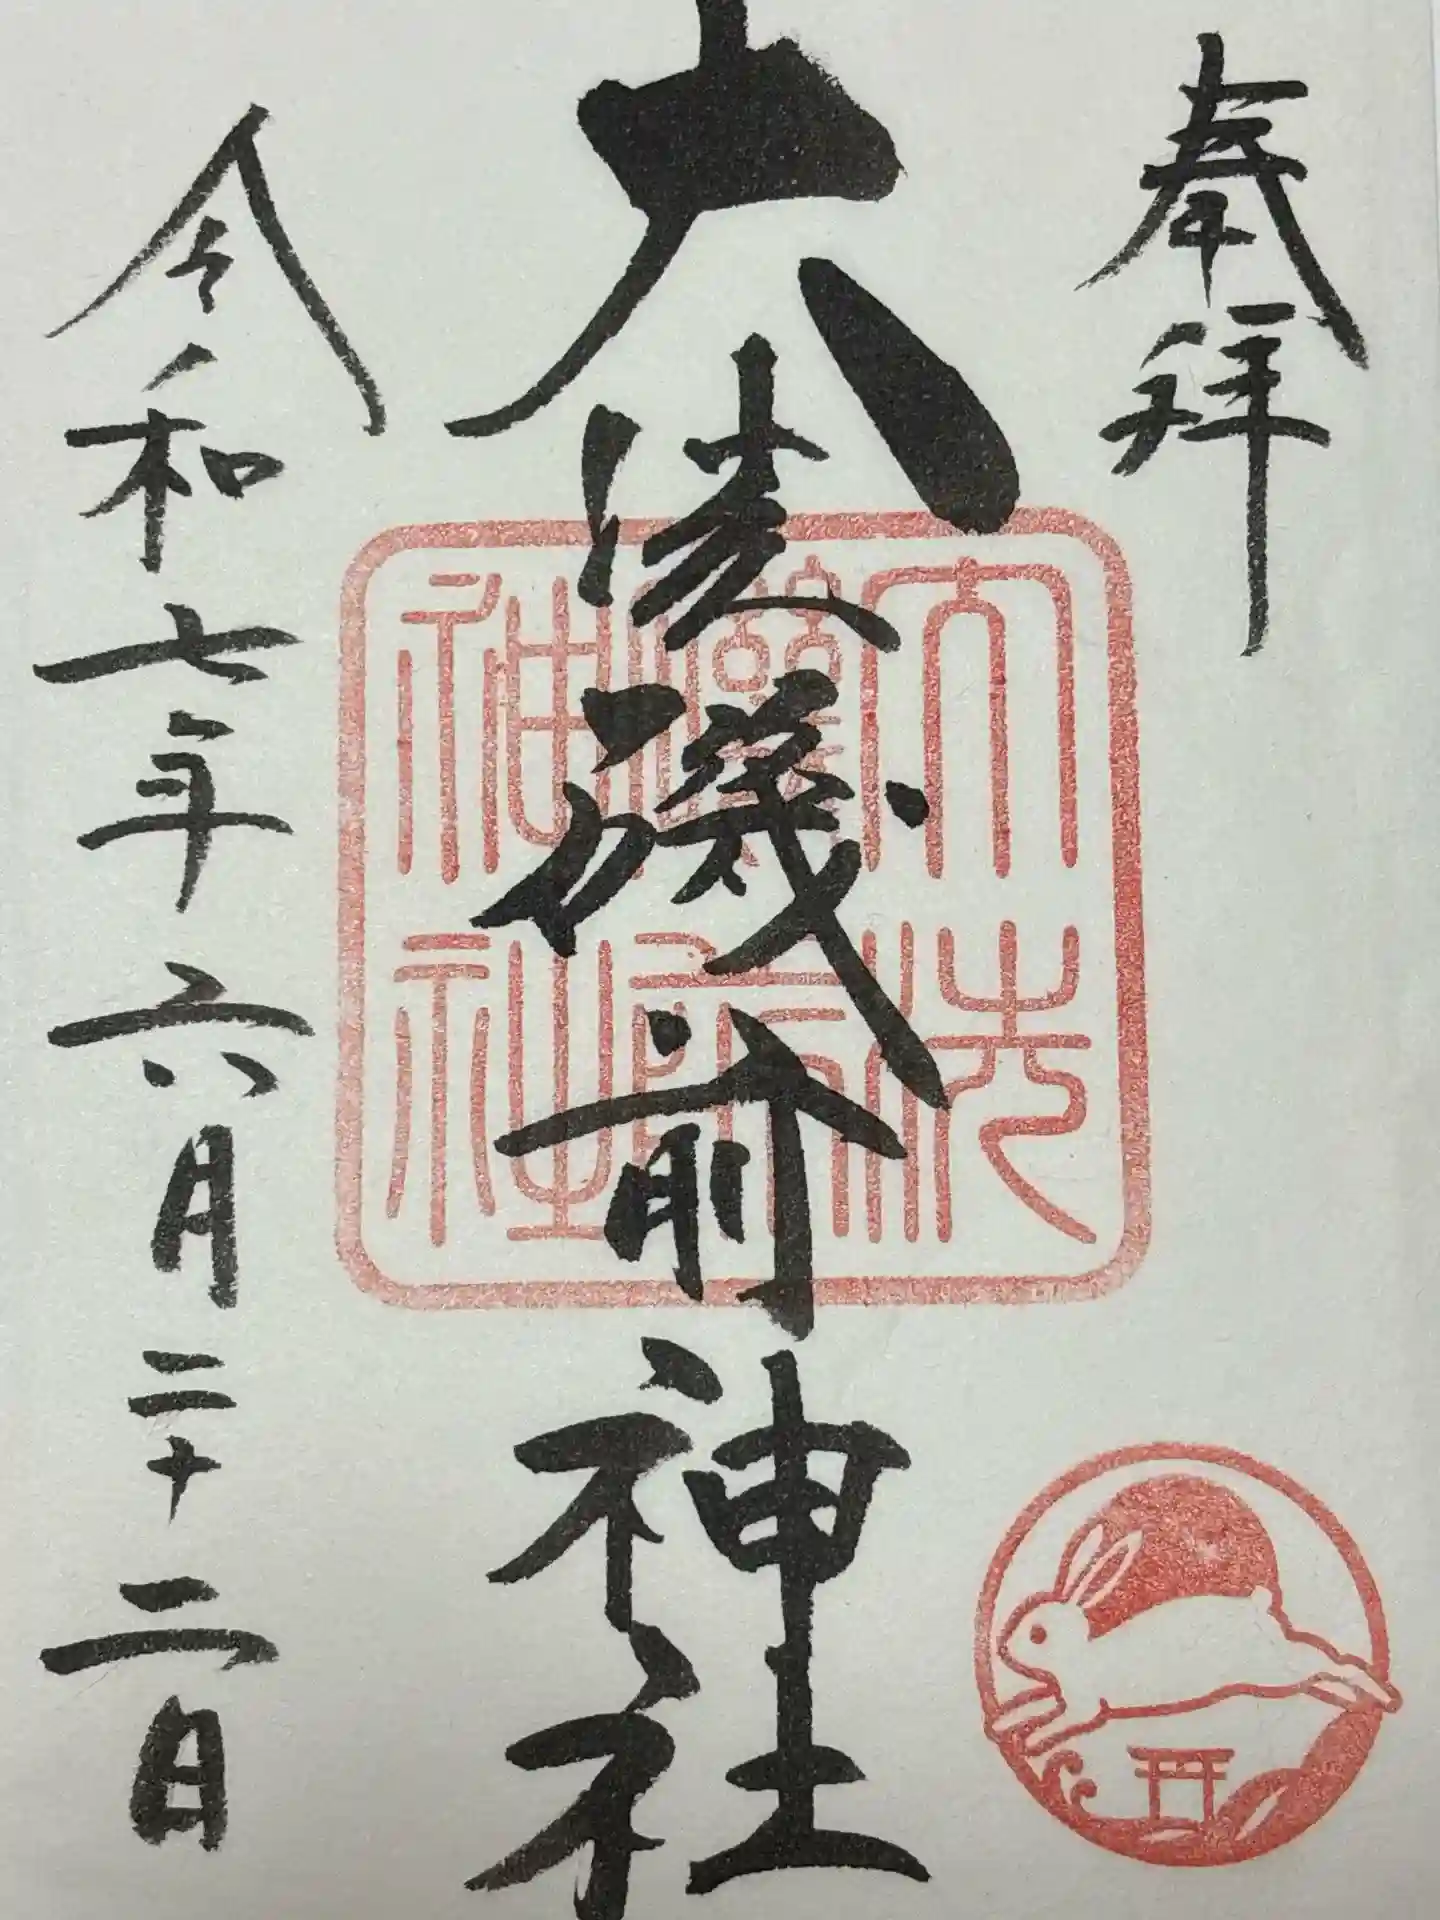 奉拝
大洗磯前神社
令和七年六月二十二日
大洗
磯前
神社